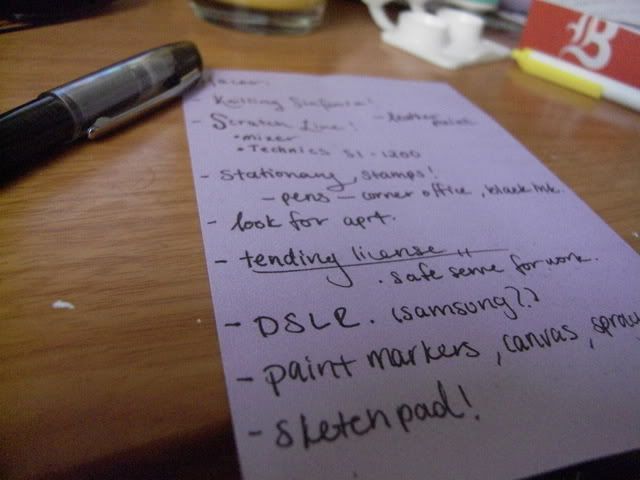 - Knitting
- Scratch Line! - leather paint
• mixer
• Technics SI - 1200
- Stationary, Stamps!
- pens - corner office, black ink.
- look for aprt.
- tending license "
. safe serve for work.
- DSLR. (samsung?)
- paint markers, canvas, spray
- sketchpad!
B